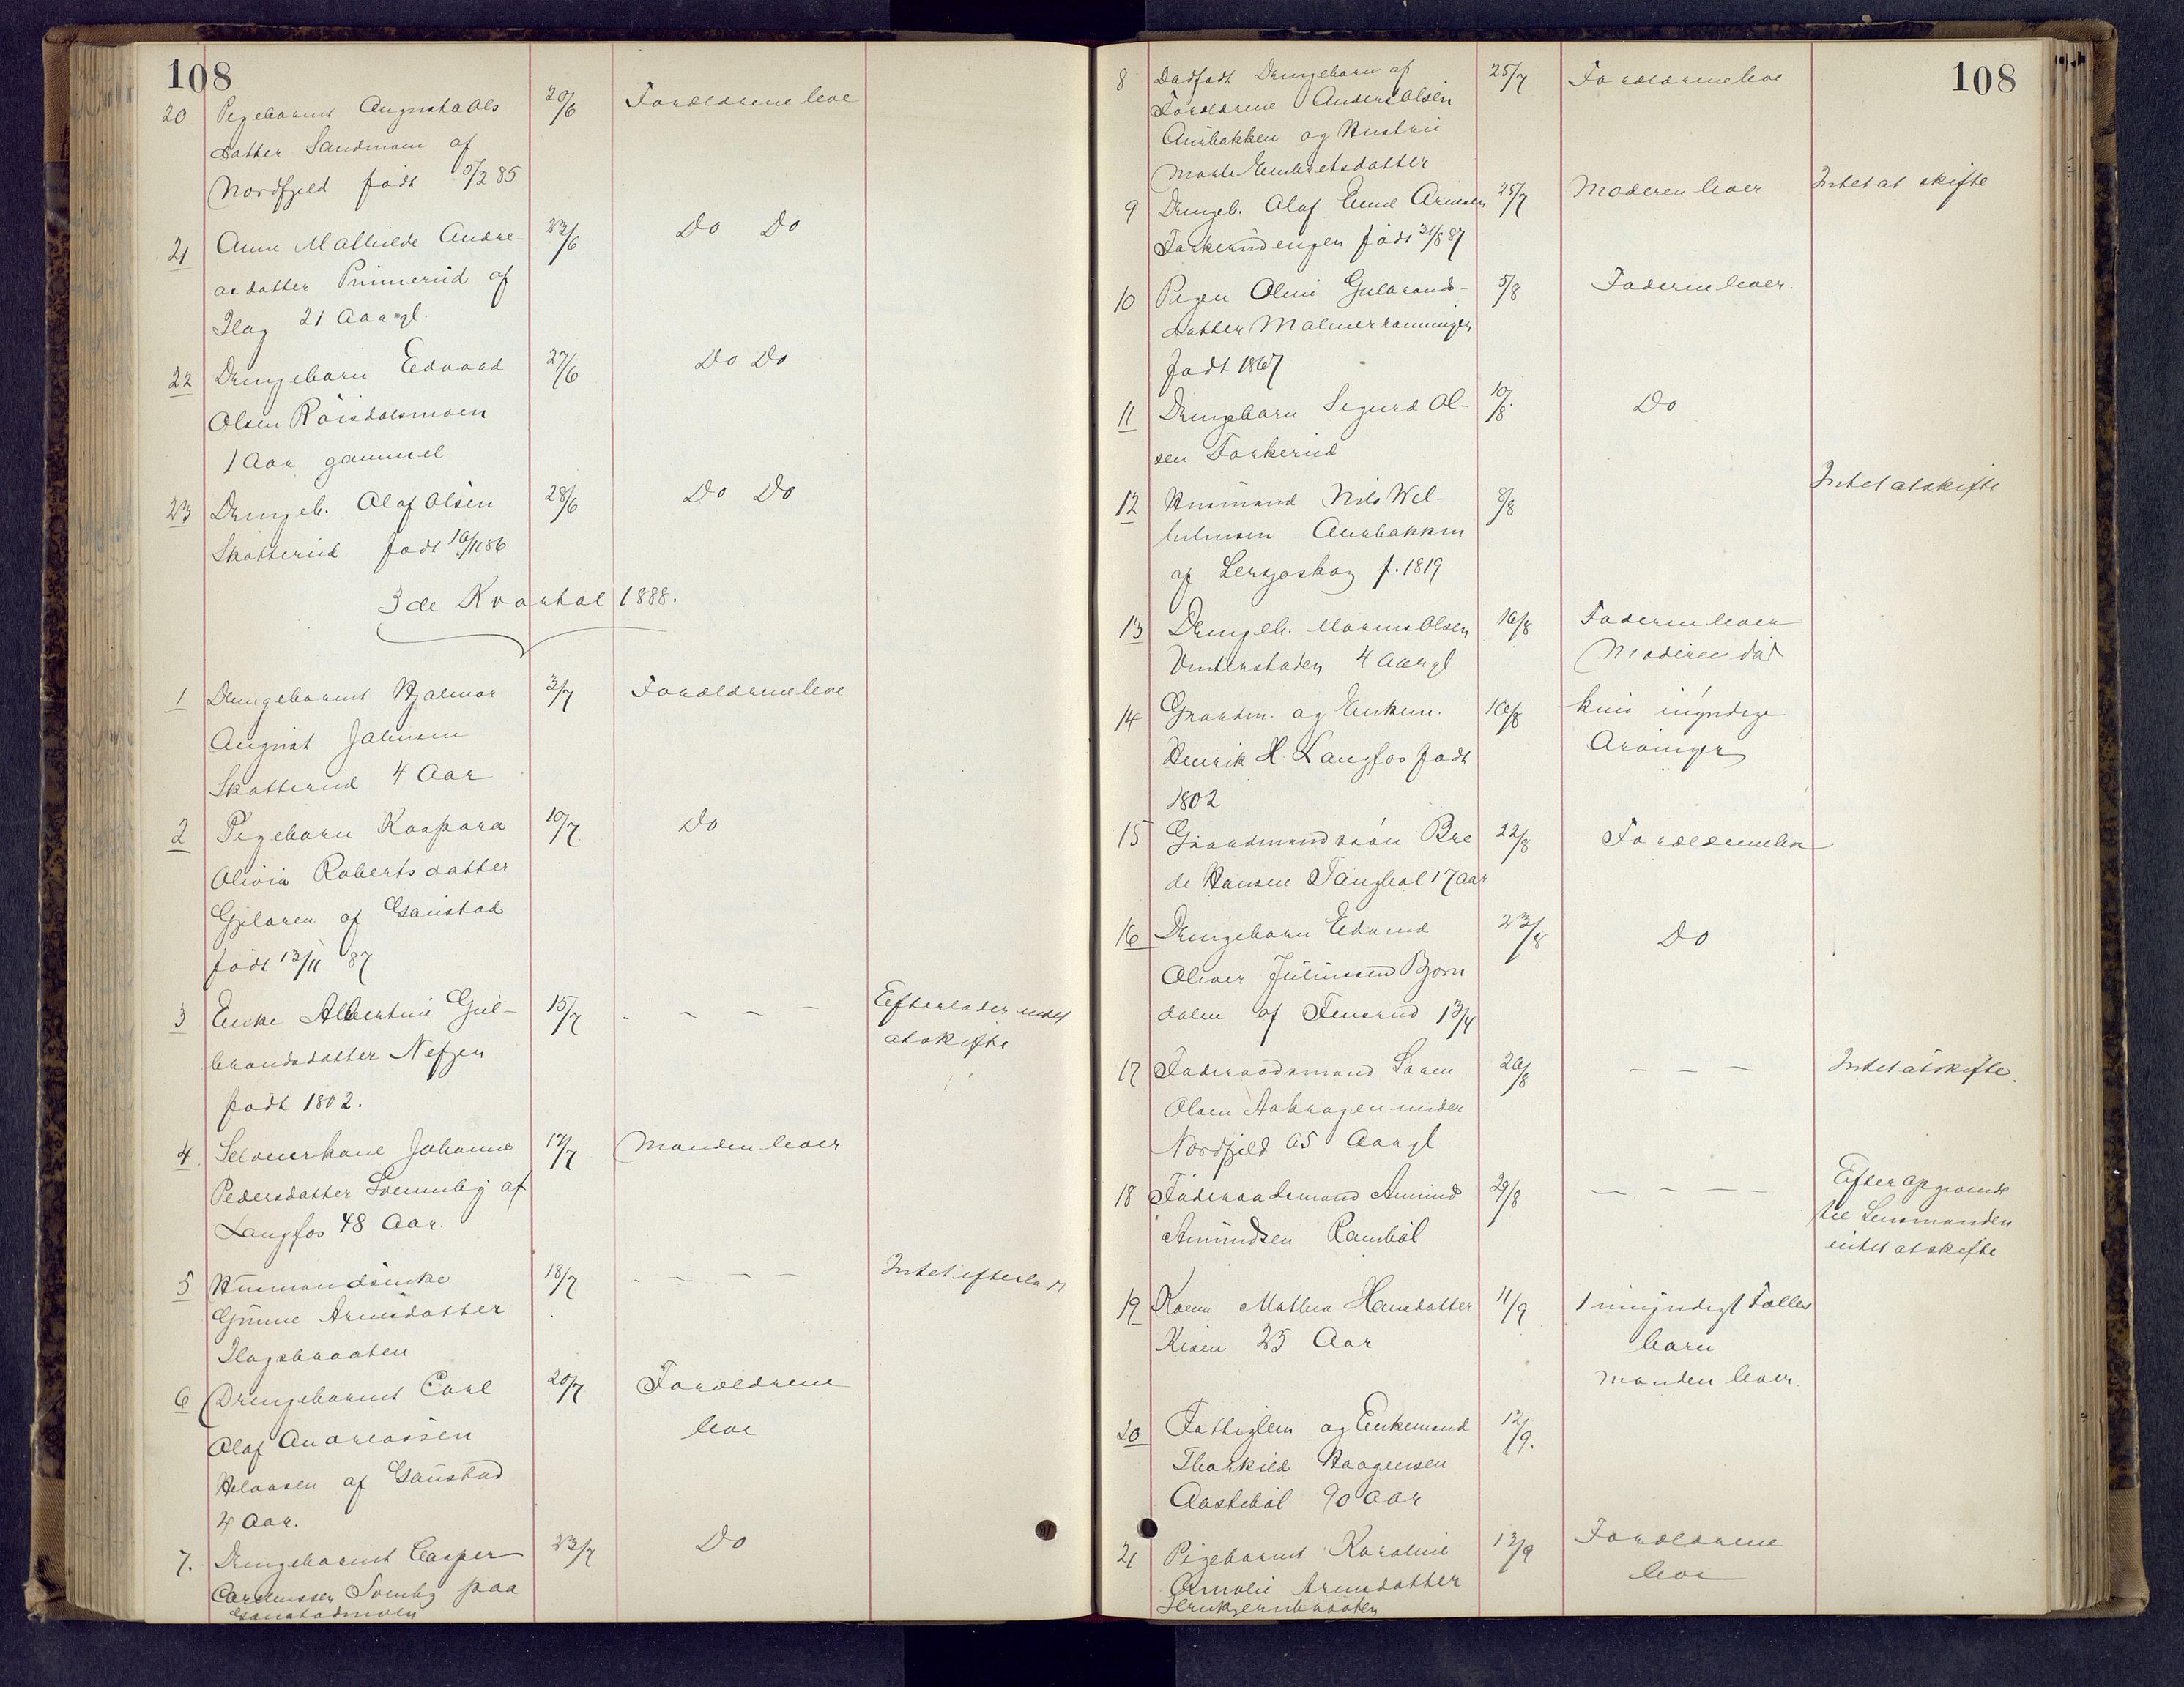 108
20 Pigebarnet Augusta Ols 20/6 Forældrene leve
datter Sandmoen af
Nordfjeld født 5/2 85
21 Anna Mathilde Andre- 23/6 Do Do
asdatter Primerud af
Ilag 21 Aar gl.
22 Drengebarn Edvard 27/6 Do Do
Olsen Röisdalsmoen
1 Aar gammel
23 Drengeb. Olaf Olsen 28/6 Do Do
Skotterud født 16/11 86
3de Kvartal 1888.
1 Drengebarnet Hjalmar 3/7 Forældrene leve
August Johnsen
Skotterud 4 Aar
2 Pigebarn Kaspara 10/7 Do
Olivia Robertsdatter
Gjelaren af Gaustad
født 13/11 87
3 Enke Albertine Gul- 15/7 - - - - Efterlader intet
brandsdatter Nefzen at skifte
født 1802.
4 Selveierkone Johanne 17/7 Manden lever
Pedersdatter Svenneby af
Langfos 48 Aar.
5 Husmandsenke 18/7 - - - - Intet efterladt
Gunne Arnesdatter
Ilagsbraaten
6 Drengebarnet Carl 20/7 Forældrene
Olaf Andreassen leve
Helaasen af Gaustad
4 Aar.
7. Drengebarnet Casper 23/7 Do
Carelinssen Svenby paa
Gaustadmoen
108
8 Dødfødt Drengebarn af 25/7 Forældrene leve
Forældrene Anders Olsen
Aurbakken og Hustru
Marte Embretsdatter
9 Drengeb. Olaf Emil Arnesen 25/7 Moderen lever Intet at skifte
Torkerudengen født 31/8 87
10 Pigen Oline Gulbrands- 5/8 Faderen lever.
datter Malmerramningen
født 1867
11 Drengebarn Sigurd Ol- 10/8 Do
sen Torkerud
12 Husmand Nils Wil- 8/8 Intet at skifte
helmsen Aurbakken
af Lerhjoskog f. 1819
13 Drengeb. Marius Olsen 16/8 Faderen lever
Vinterstaden 4 Aar gl Moderen död
14 Gaardm. og Enkem. 16/8 kun myndige
Henrik H. Langfos født Arvinger
1802
15 Gaardmandssön Bre 22/8 Forældrene leve
de Hansen Tangböl 17 Aar
16 Drengebarn Edvard 23/8 Do
Oliver Juliussen Björn
dalen af Tensrud 13/4
17 Føderaadsmand Søren 26/8 - - - Intet at skifte.
Olsen Aabrogen under
Nordfjeld 65 Aar gl
18 Föderaadsmand Amund 29/8 - - - - Efter opgivende
Amundsen Ramböl til Lensmanden
intet at skifte
19 Kone Mathea Hansdatter 11/9 1 umyndigt Fælles
Kisen 25 Aar barn
Manden lever.
20 Fattiglem og Enkemand 12/9.
Thorkild Haagensen
Aasteböl 90 Aar
21 Pigebarnet Karoline 13/9 Forældrene
Amalie Arnesdatter leve